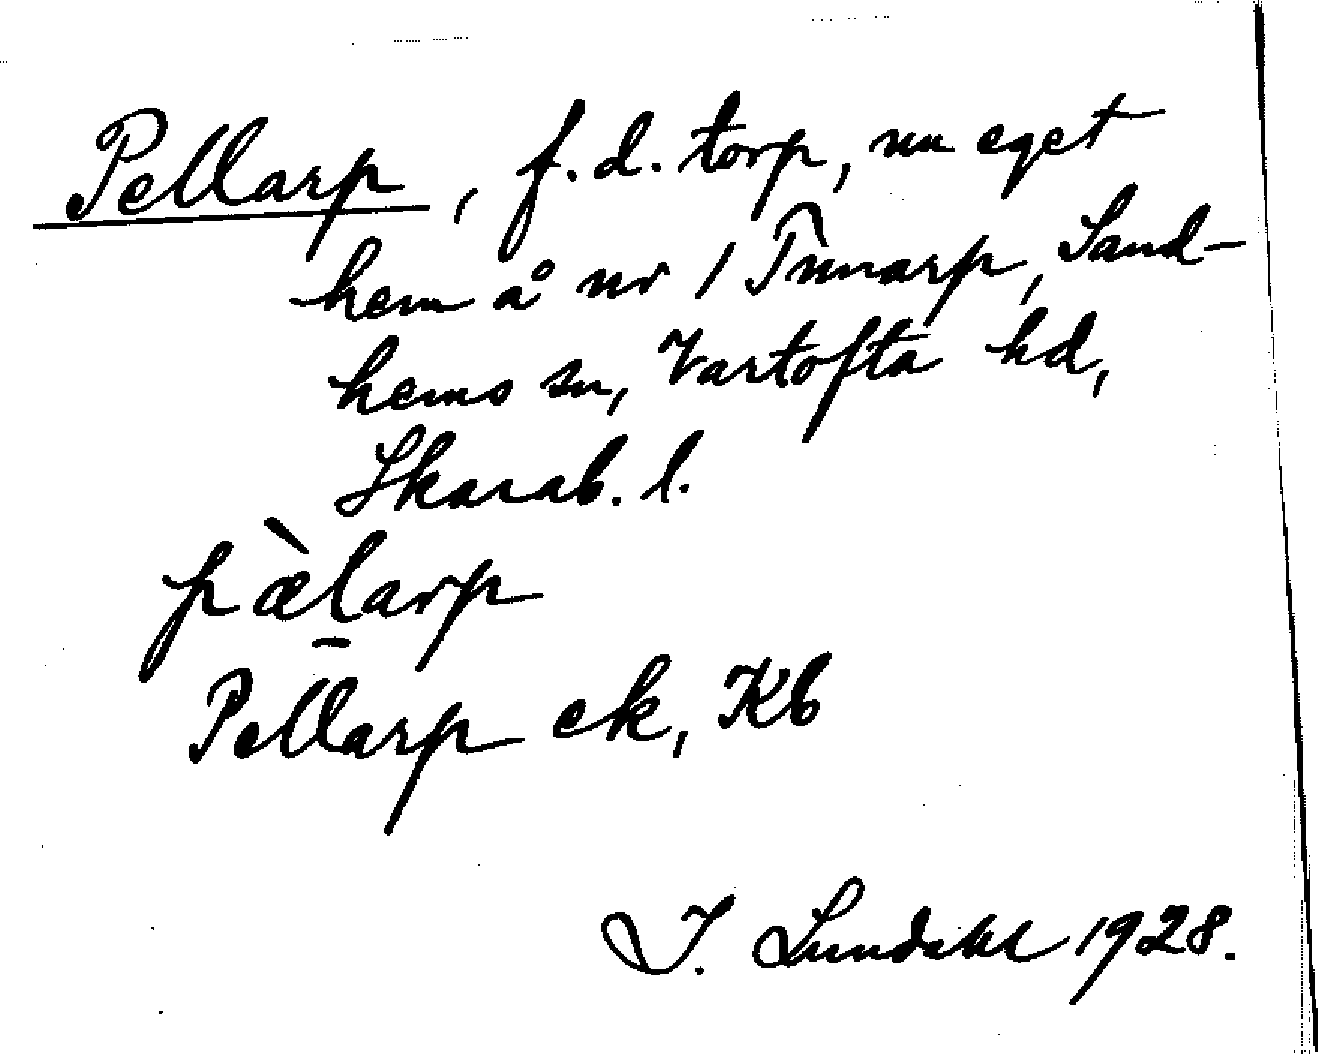 Pellarp, f.d. torp, nu eget
hem å nr 1 Tunarp, Sand-
hems sn, Vartofta hd,
Skarab. l.
pæ̀l̠arp
Pellarp ek, Kb
I. Lundahl 1928.